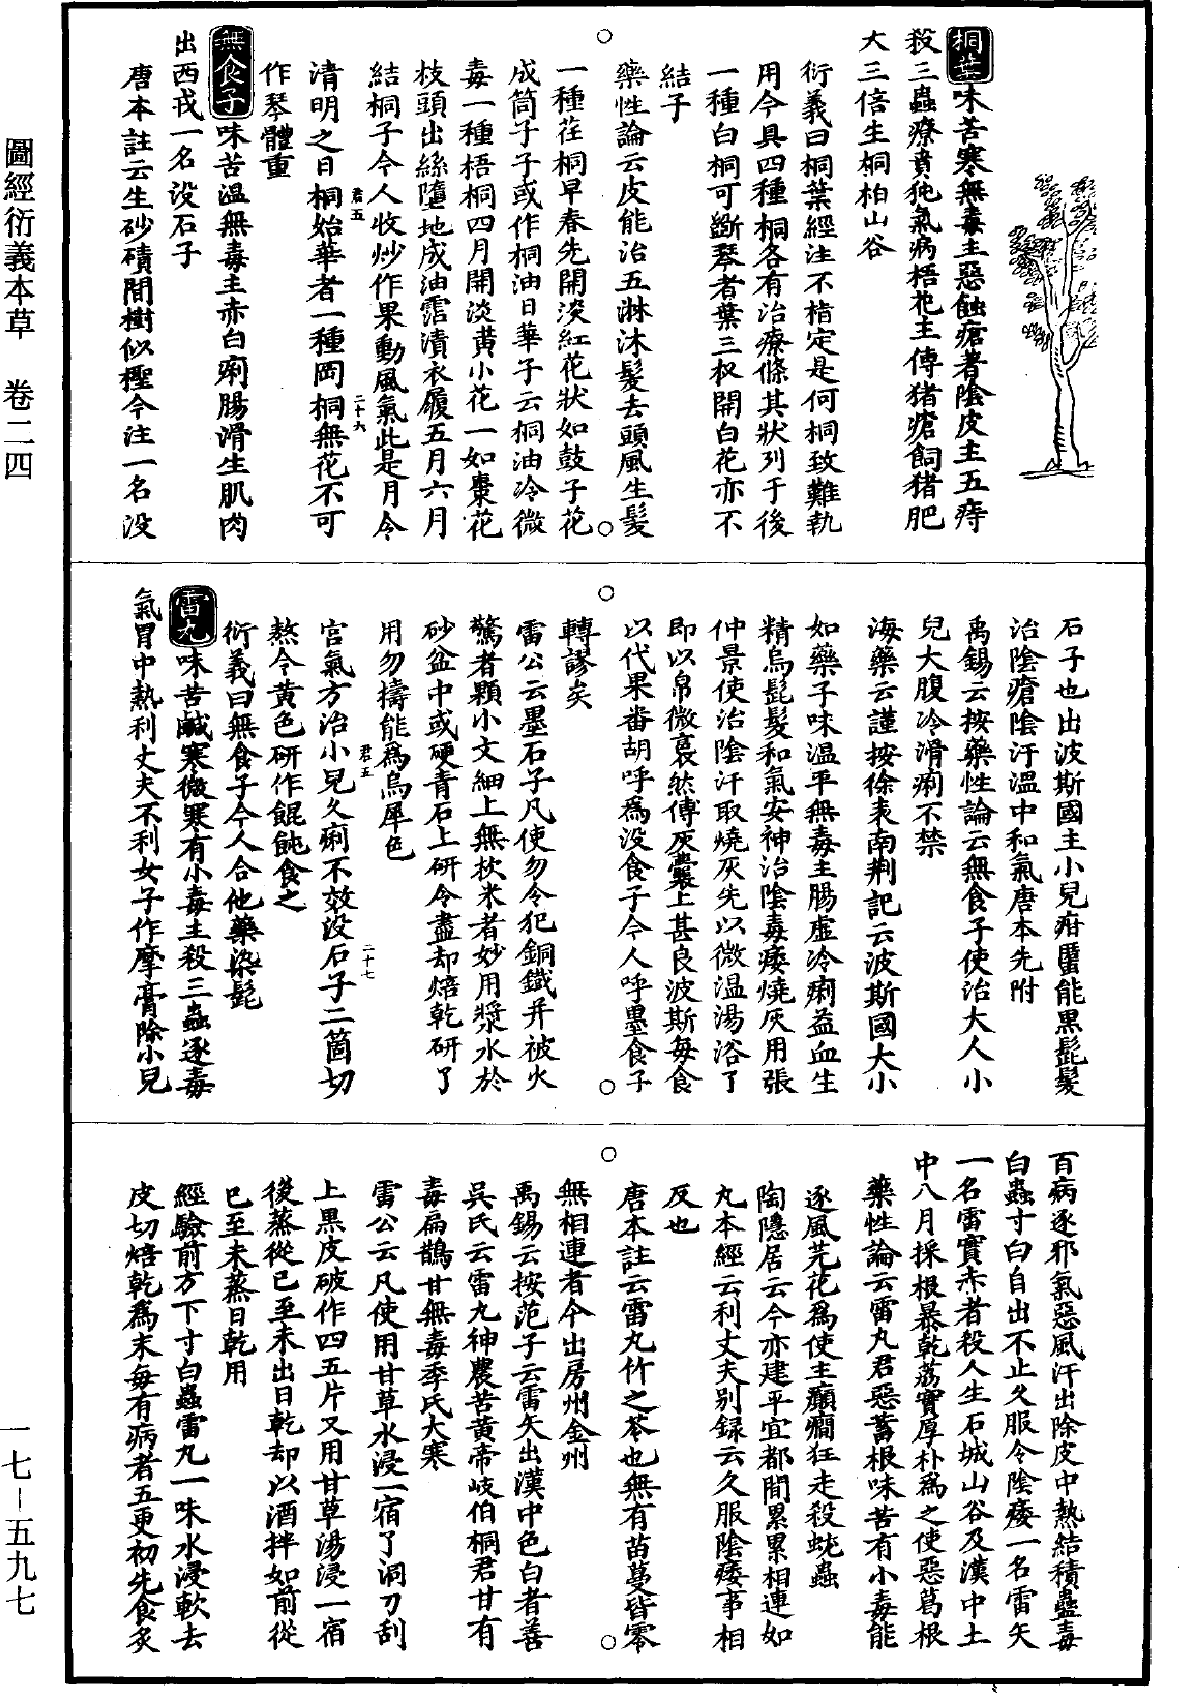 桐葉味苦寒無毒主惡蝕瘡著陰皮主五痔
殺三蟲療賁㹠氣病梧花主傅猪瘡飼猪肥
大三倍生桐柏山谷
衍義曰桐葉經注不指定是何桐致難執
用今具四種桐各有治療條其狀列于後
一種白桐可斲琴者葉三杈開白花亦不
結子
藥性論云皮能治五淋沐髮去頭風生髮
一種荏桐早春先開淡紅花狀如鼓子花
成筒子子或作桐油日華子云桐油冷微
毒一種梧桐四月開淡黃小花一如棗花
枝頭出絲墮地成油霑漬衣履五月六月
結桐子今人收炒作果動風氣此是月令
君五
二十六
清明之日桐始華者一種岡桐無花不可
作琴體重
無食子味苦溫無毒主赤白痢腸滑生肌肉
出西戎一名没石子
唐本註云生砂磧間樹似檉今注一名没
石子也出波斯國主小兒疳䘌能黑髭髮
治陰瘡陰汗溫中和氣唐本先附
禹錫云按藥性論云無食子使治大人小
兒大腹冷滑痢不禁
海藥云謹按徐表南荆記云波斯國大小
如藥子味溫平無毒主腸虛冷痢益血生
精烏髭髮和氣安神治陰毒痿燒灰用張
仲景使治陰汗取燒灰先以微溫湯浴了
即以帛微裛然傅灰囊上甚良波斯每食
以代果番胡呼爲没食子今人呼墨食子
轉謬矣
雷公云墨石子凡使勿令犯銅鐵并被火
驚者顆小文細上無枕米者妙用漿水於
砂盆中或硬青石上研令盡却焙乾研了
用勿擣能爲烏犀色
君五
二十七
宫氣方治小兒久痢不效没石子二箇切
熬令黄色研作餛飩食之
衍義曰無食子今人合他藥染髭
雷丸味苦鹹寒微寒有小毒主殺三蟲逐毒
氣胃中熱利丈夫不利女子作摩膏除小兒
百病逐邪氣惡風汗出除皮中熱結積蠱毒
白蟲寸白自出不止久服令陰痿一名雷矢
一名雷實赤者殺人生石城山谷及漢中土
中八月採根暴乾荔實厚朴爲之使惡葛根
藥性論云雷丸君惡蓄根味苦有小毒能
逐風芫花爲使主癲癎狂走殺蚘蟲
陶隱居云今亦建平宜都間累累相連如
丸本經云利丈夫别録云久服陰痿事相
反也
唐本註云雷丸竹之苓也無有苗蔓皆零
無相連者今出房州金州
禹錫云按范子云雷矢出漢中色白者善
吳氏云雷丸神農苦黄帝岐伯桐君甘有
毒扁鵲甘無毒季氏大寒
雷公云凡使用甘草水浸一宿了洞刀刮
上黑皮破作四五片又用甘草湯浸一宿
後蒸從已至未出日乾却以酒拌如前從
已至未蒸日乾用
經驗前方下寸白蟲雷丸一味水浸軟去
皮切焙乾爲末每有病者五更初先食炙
圖經衍義本草　卷二四
一七－五九七